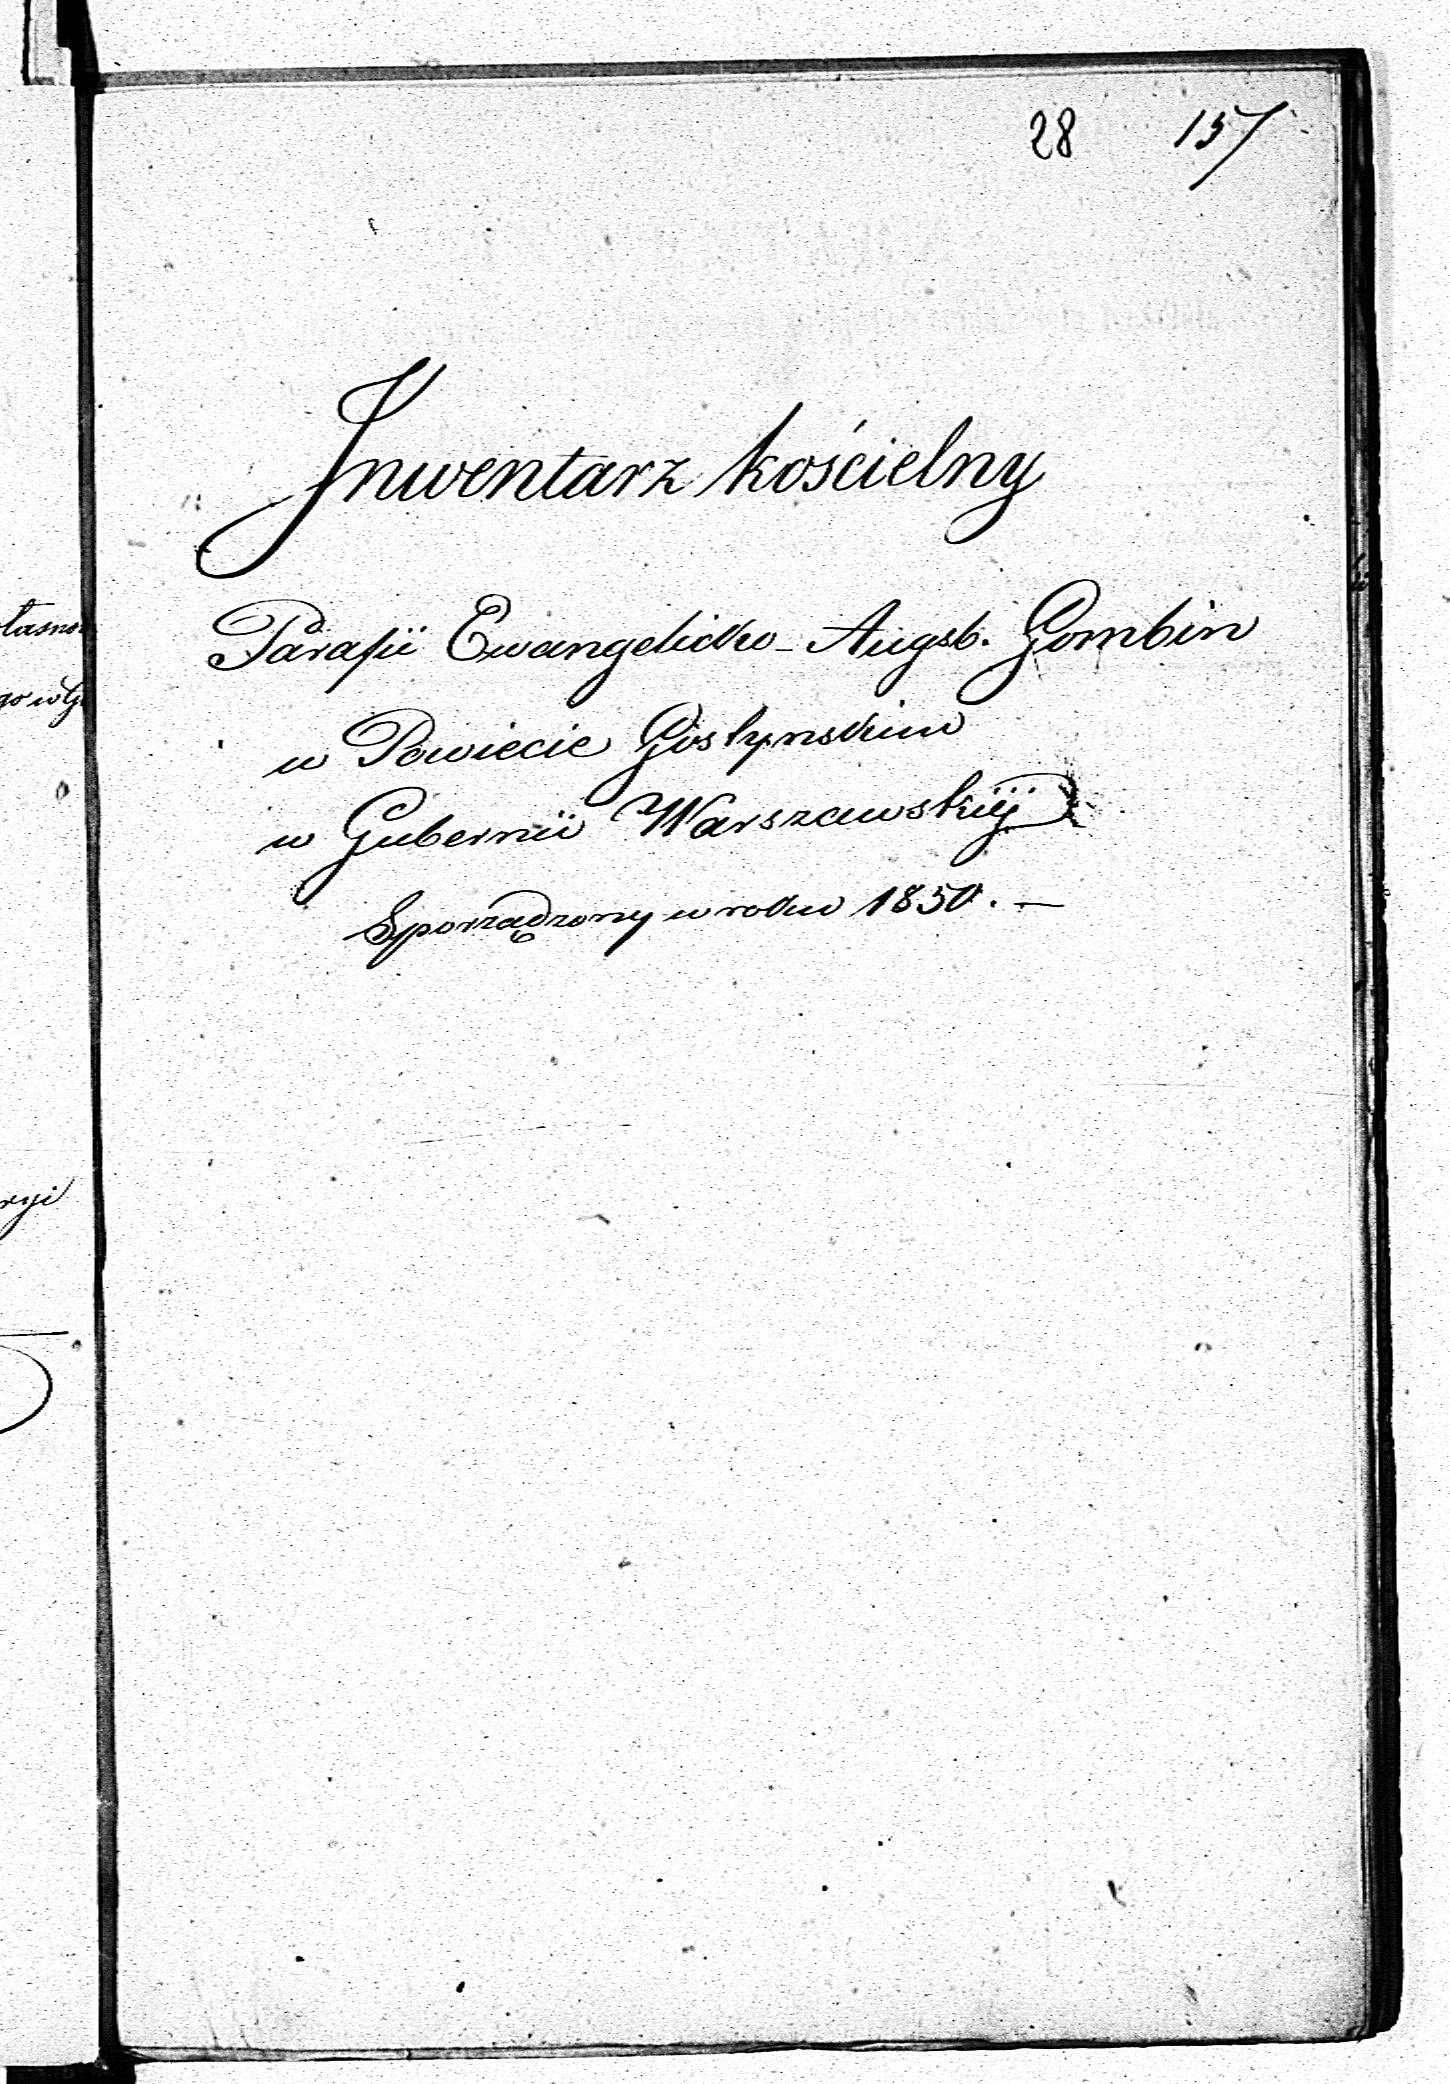 28 157
Inwentarz kościelny
Parafii Ewangelicko-Augsb. Gombin
w Powiecie Gostynskim
w Gubernii Warszawskiéj
Sporządzony w roku 1850. —